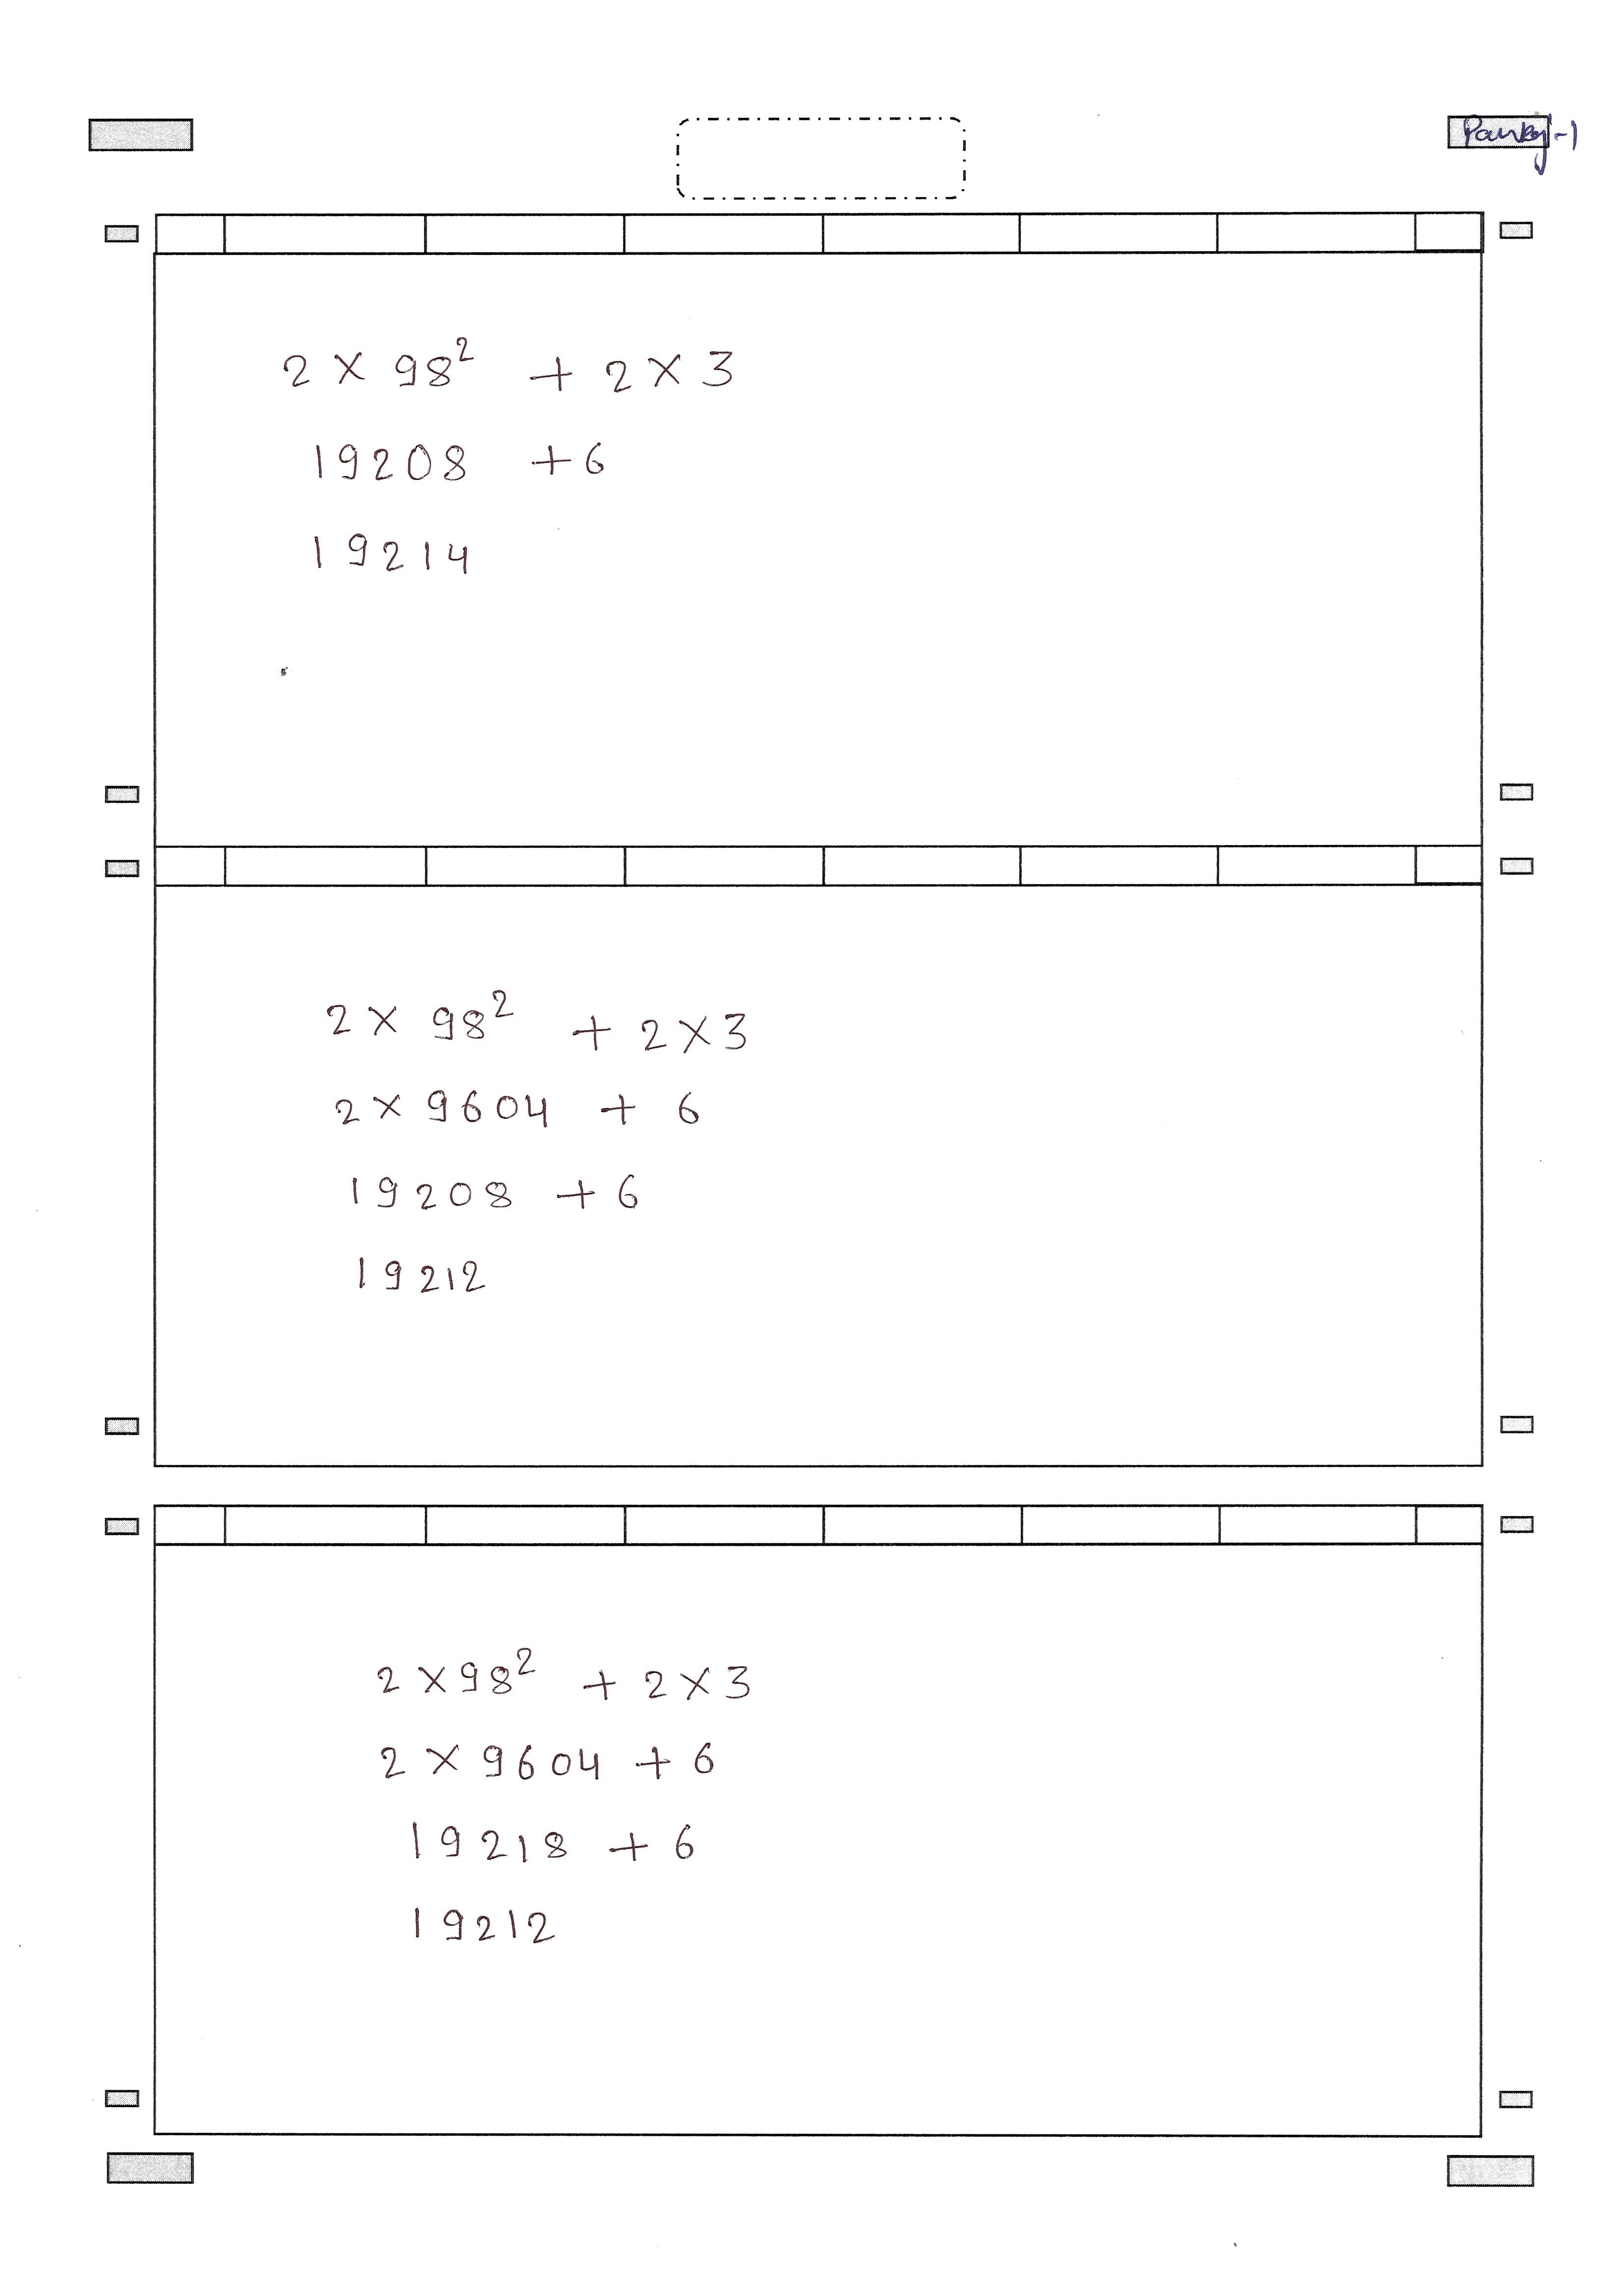 Pankaj-1
2 × 98² + 2 × 3
19208 + 6
19214
2 × 98² + 2 × 3
2 × 9604 + 6
19208 + 6
19212
2 × 98² + 2 × 3
2 × 9604 + 6
19218 + 6
19212